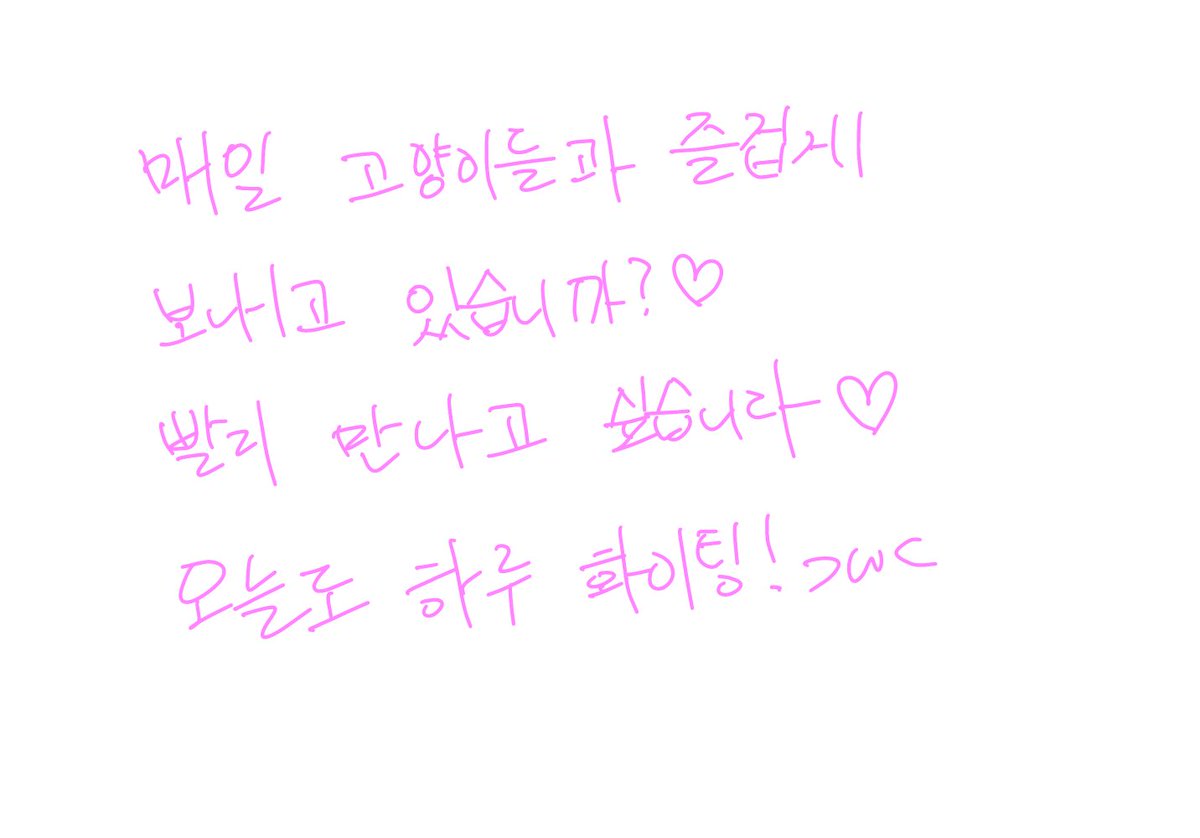 매일 고양이들과 즐겁게
보내고 있습니까?♡
빨리 만나고 싶습니다♡
오늘도 하루 화이팅!>w<